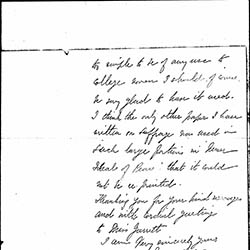 too simple to be of any use to
college women I should, of course,
be very glad to have it used.
I think the only other paper I have
written on suffrage was used in
such large portions in "Newer
Ideals of Peace" that it could
not be re-printed.
Thanking you for your kind messages
and with cordial greeting
to Miss Garrett
I am very sincerely yours